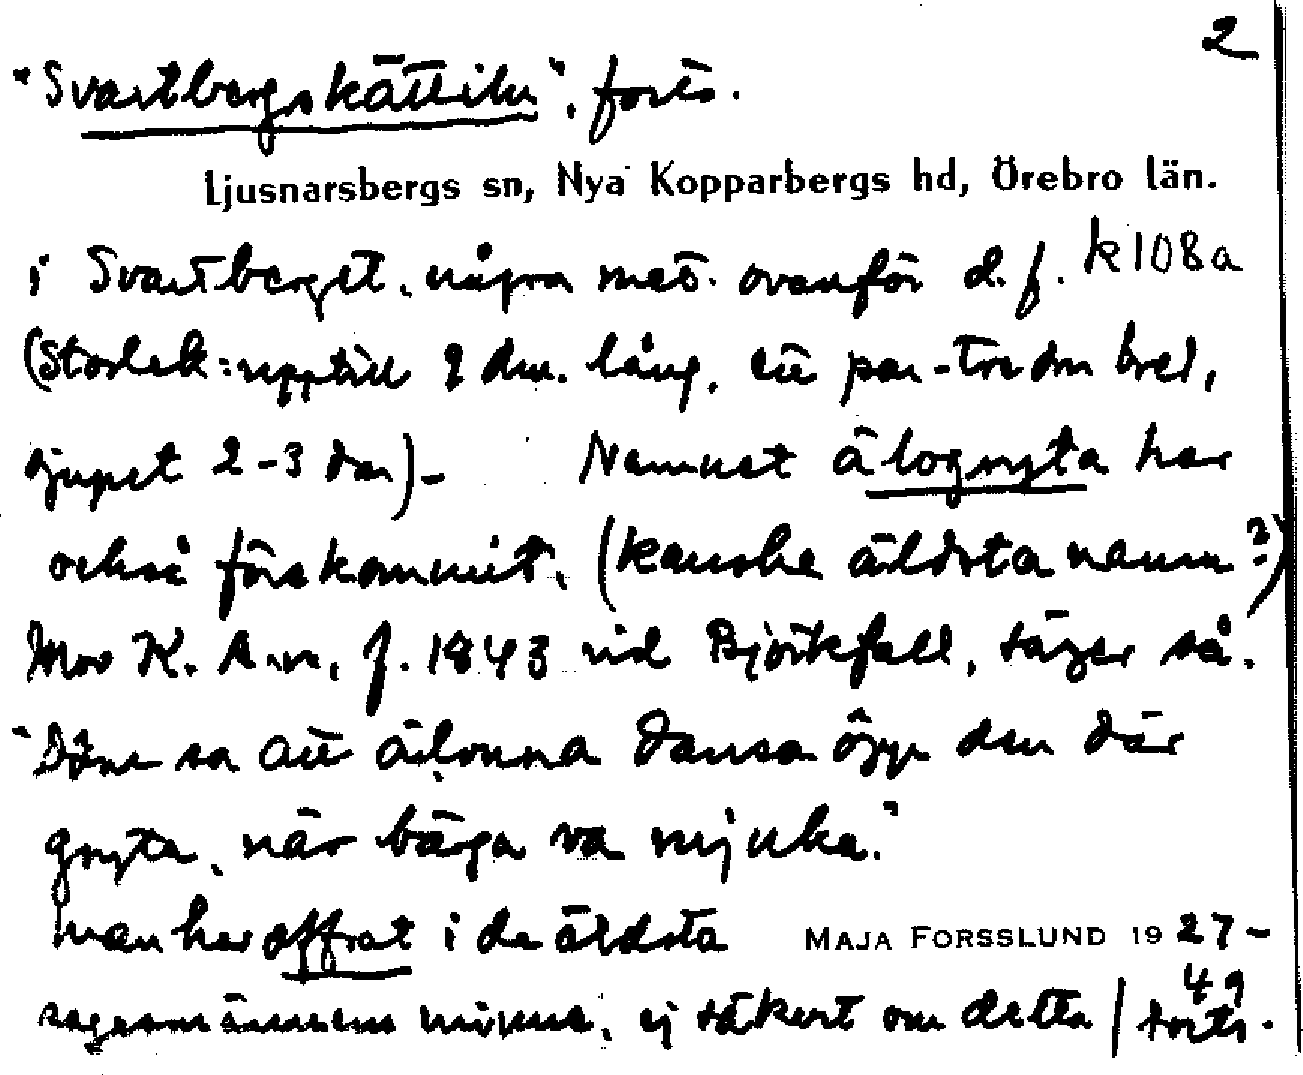 2
"Svartbergskätteln", forts.
Ljusnarsbergs sn, Nya Kopparbergs hd, Örebro län.
i Svartberget, några met. ovanför d. f. k 108a
(Storlek: upptill 9 dm. lång, ett par-tre dm bred,
djupet 2-3 dm)- Namnet älvgryta har
också förekommit. (kanske äldsta namn?)
Mor K. A-n, f. 1843 vid Björkfall, säger så.
sa att älvorna dansa öpp den där
gryta, när bärga va mjuka."
Man har offrat i de äldsta MAJA FORSSLUND 1927-
49
sagesmännens minne, ej säkert om detta / forts.